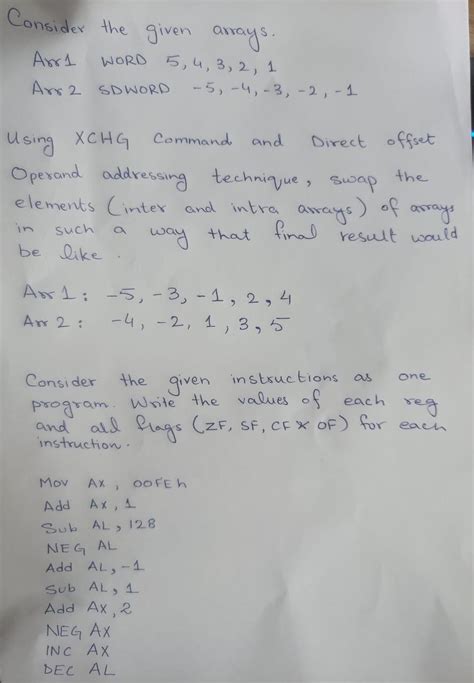 Consider the given arrays.
Arr1 WORD 5, 4, 3, 2, 1
Arr2 SDWORD -5, -4, -3, -2, -1
Using XCHG Command and Direct offset
Operand addressing technique, swap the
elements (inter and intra arrays) of arrays
in such a way that final result would
be like.
Arr1: -5, -3, -1, 2, 4
Arr2: -4, -2, 1, 3, 5
Consider the given instructions as one
program. Write the values of each reg
and all flags (ZF, SF, CF & OF) for each
instruction.
Mov AX, 00FEh
Add AX, 1
Sub AL, 128
NEG AL
Add AL, -1
Sub AL, 1
Add AX, 2
NEG AX
INC AX
DEC AL